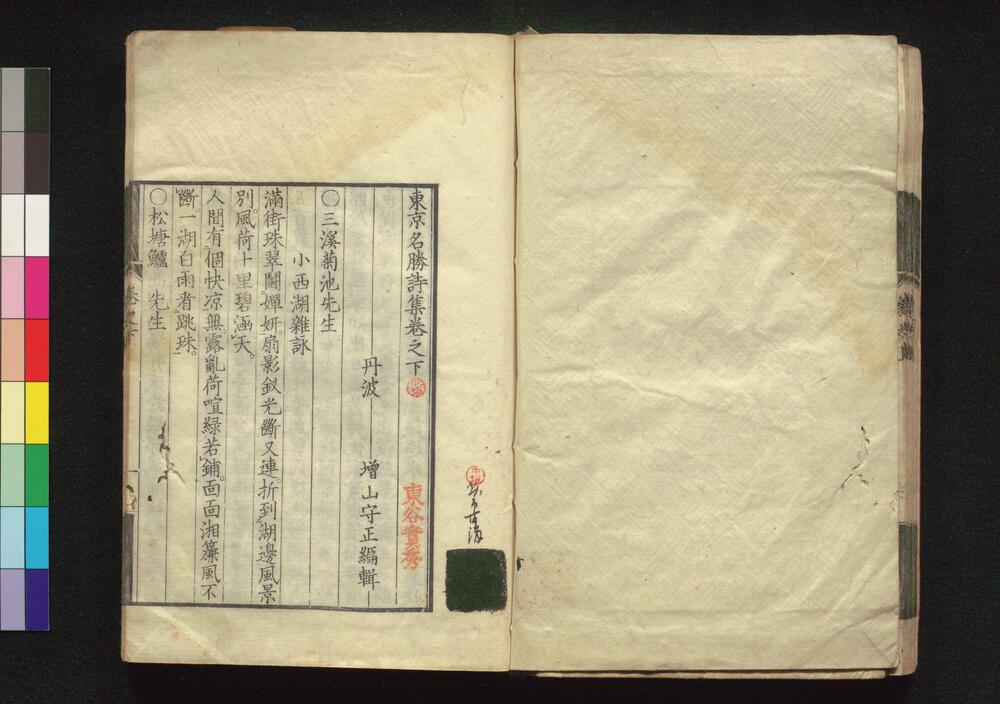 東京名勝詩集卷之下
丹波 增山守正編輯
東谷寶秀
〇三溪菊池先生
小西湖雜詠
滿街珠翠鬪嬋妍。扇影釵光斷又連。折到湖邊風景
別。風荷十里碧涵天。
人間有個快凉無。露亂荷喧綠若鋪。面面湘簾風不
斷。一湖白雨看跳珠。
〇松塘鱸 先生